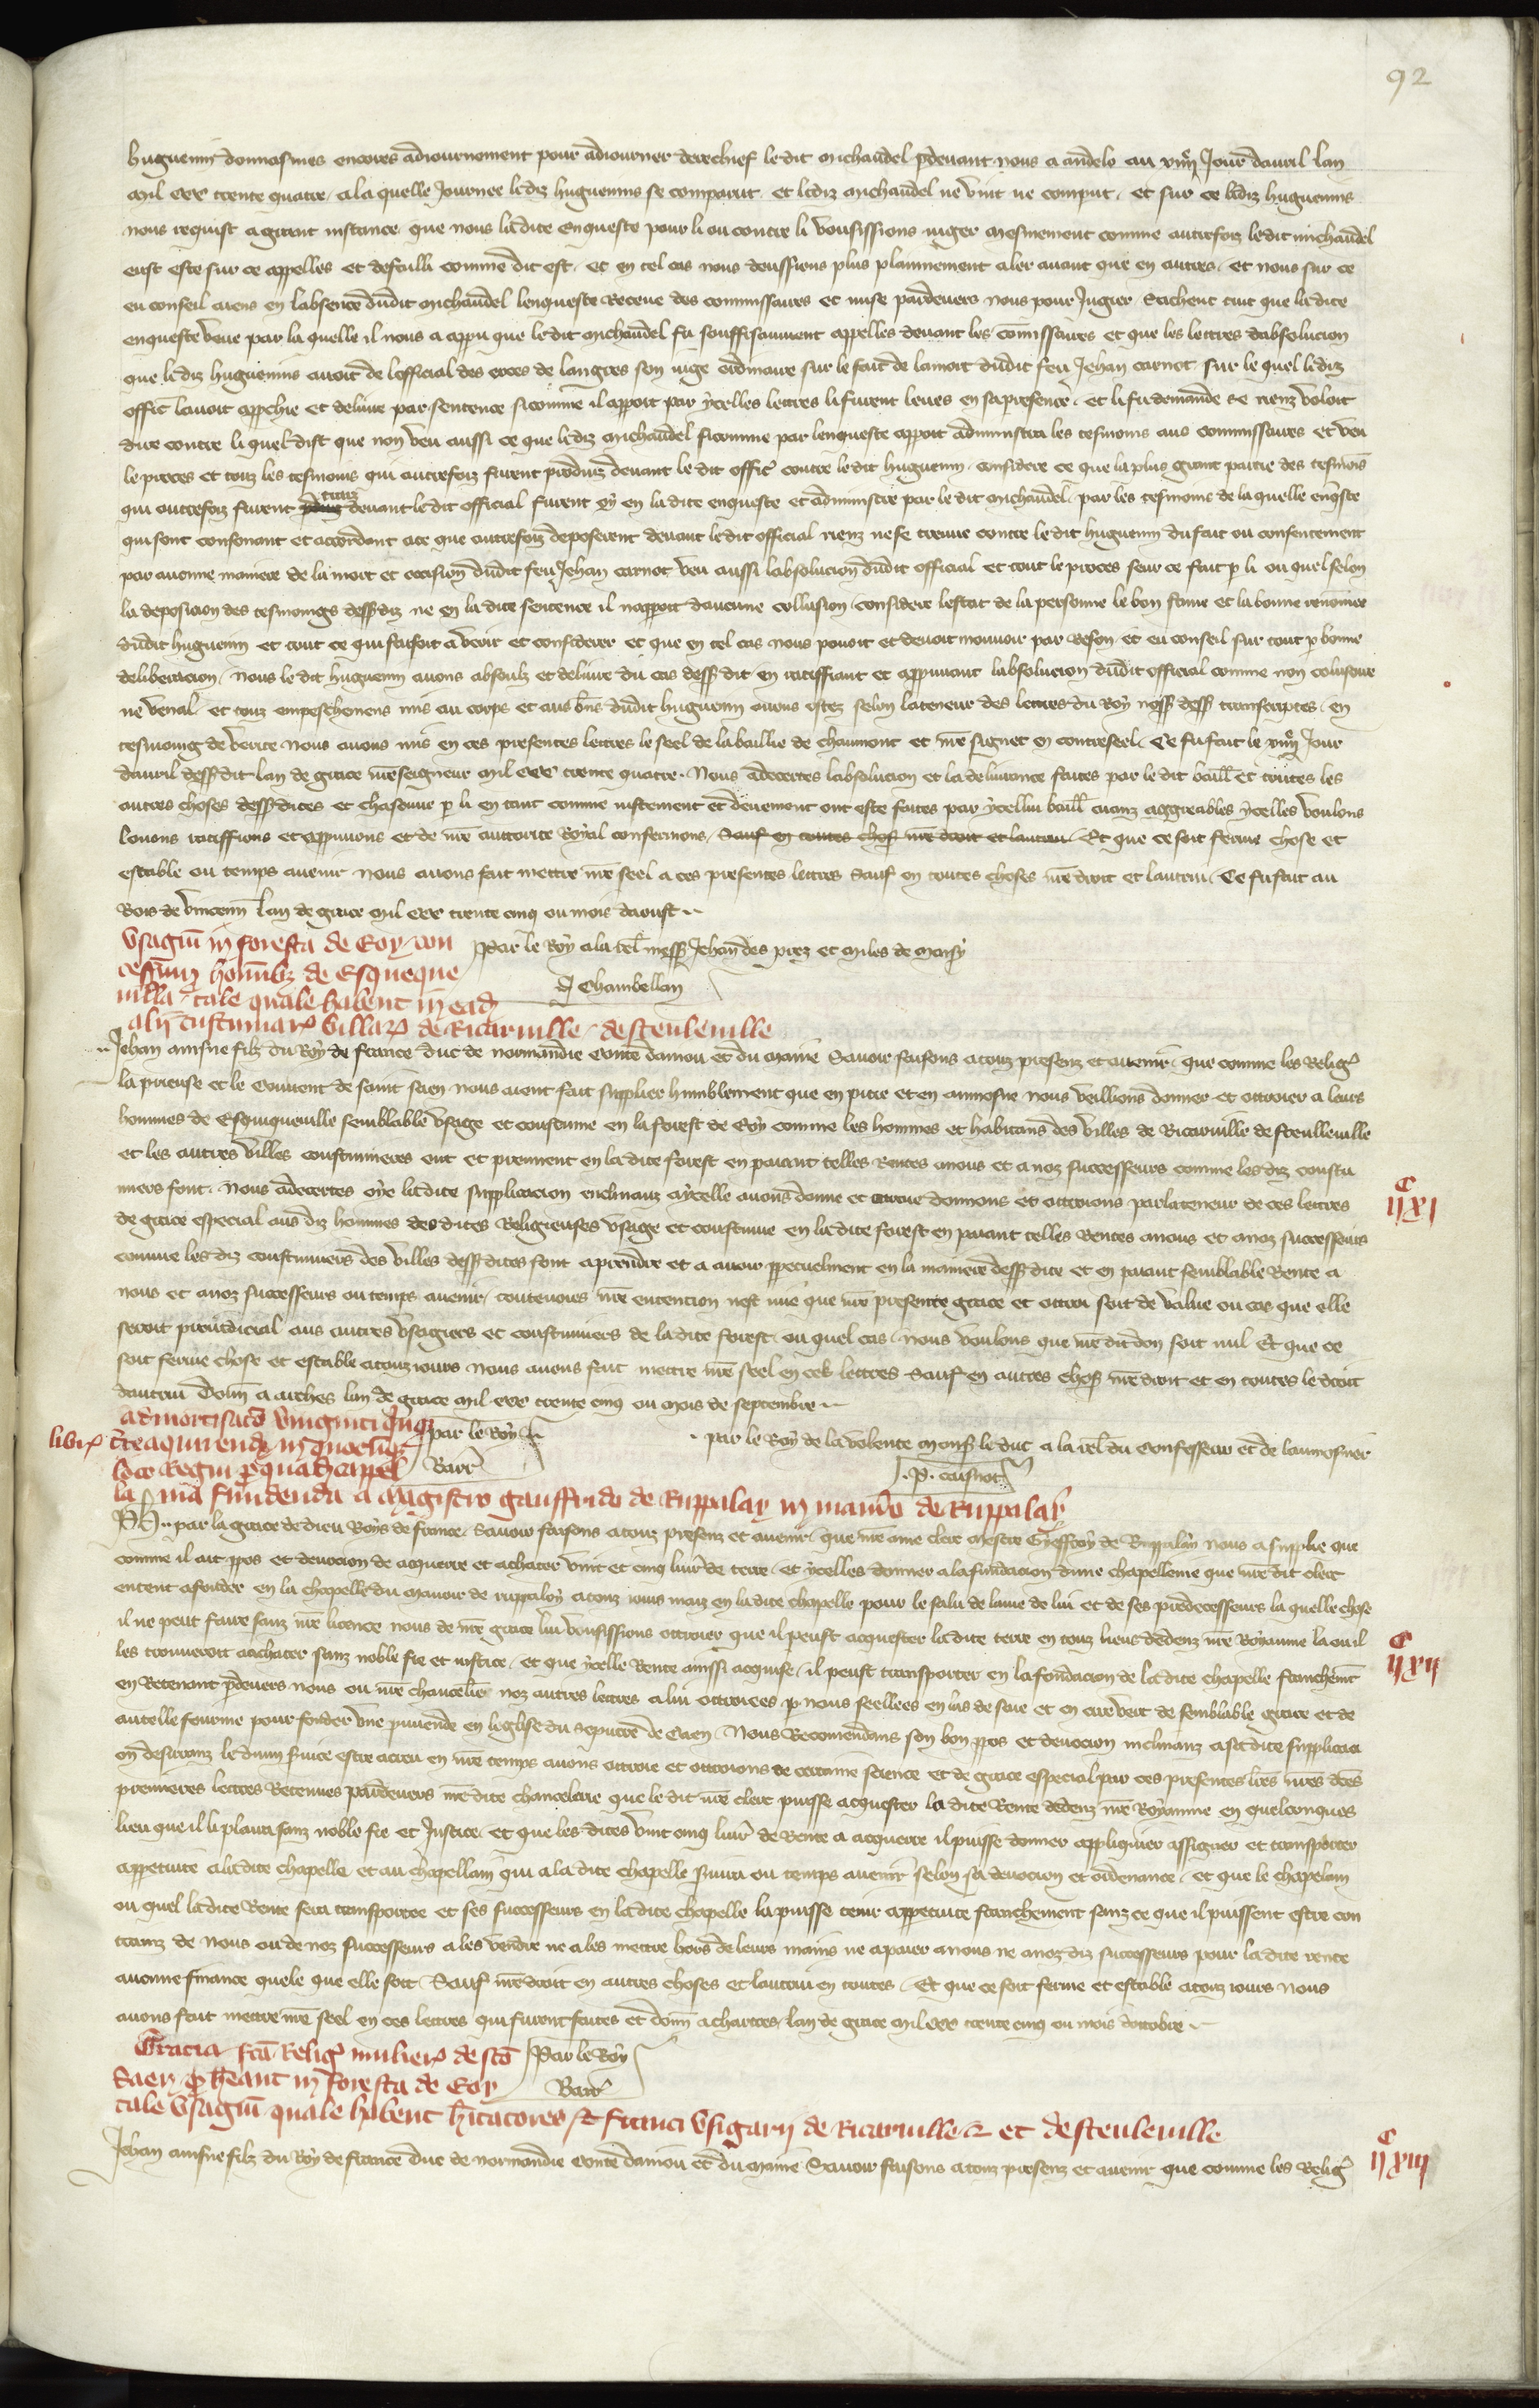 92
huguenin donnasmes encores adiournement pour adiourner derechief ledit michaudel pdevant nous a andelo au xiiij Jour davril lan
mil ccc trente quatre, a la quelle Journee ledit huguenins se comparut, et lediz michaudel ne vint ne comput, et sur ce lediz huguenins
nous requist a grant instance que nous ladite enqueste pour li ou contre li vousissions iuger mesmement comme autrefoiz ledit michaudel
eust este sur ce appelles et defailli comme dit est, et en tel cas nous deussiens plus plainnement aler avant que en autres, et nous sur ce
eu conseil avens en labsence dudit michaudel lenqueste Receue des commissaires et mise pardevers nous pour Jugier, Sachent tuit que ladite
enqueste veue par la quelle il nous a appu que ledit michaudel fu souffisaument appelles devant les comissaires et que les lettres dabsolucion
que lediz huguenins avoit de lofficial des exces de langres son iuge ordinaire sur le fait de la mort dudit feu Jehan carnot sur le quel lediz
offic lavoit appchie et delivre par sentence sicomme il apport par ycelles lettres li furent leues en sa presence, et li fu demande se rienz voloit
dire contre li quel dist que non veu aussi ce que lediz michaudel sicomme par lenqueste appoit administra les tesmoins aus commissaires et veu
le proces et touz les tesmoins qui autrefoiz furent produiz devant le dit offic contre ledit huguenin, considere ce que la plus grant partie des tesmois
qui autrefoiz furent devant ledit official furent oy en ladite enqueste et administre par le dit michaudel, par les tesmoins de la quelle enqste
qui sont consonant et accordant a ce que autrefoiz deposerent devant ledit official rienz ne se treuve contre ledit huguenin du fait ou consentement
par aucune maniere de la mort et occision dudit feu Jehan carnot veu aussi labsolucion dudit official et tout le proces seur ce fait p li ou quel selon
la deposicion des tesmoings dessdiz ne en ladite sentence il nappoit daucune collusion, considere lestat de la personne le bon fame et la bonne renomee
dudit huguenin et tout ce qui faisoit a veoir et considerer et que en tel cas nous pouoit et devoit mouvoir par Reson et eu conseil sur tout p bonne
deliberacion, nous le dit huguenin avons absoulz et delivre du cas dess dit en ratiffiant et appruvant labsolucion dudit official comme non colusoire
ne venal, et touz empeschemens mis au corps et aus bns dudit huguenin avons ostez selon la teneur des lettres du Roy noss dess transcriptes, en
tesmoing de verite nous avons mis en ces presentes lettres le seel de la baillie de chaumont et nre signet en contreseel, Ce fu fait le xiiij Jour
davril dess dit lan de grace nreseigneur mil ccc trente quatre. Nous adecertes labsolucion et la delivrance faites par le dit baill et toutes les
autres choses dessdites et chascune p li en tant comme iustement et deuement ont este faites par ycellui baill aianz aggreables ycelles voulons
louons ratiffions et appruvons et de nre auttorite Royal confermons, Sauf en toutes chos nre droit et lautrui, Et que ce soit ferme chose et
estable ou temps avenir nous avons fait mettre nre seel a ces presentes lettres Sauf en toutes choses nre droit et lautrui, Ce fu fait au
Bois de vincenn lan de grace mil ccc trente cinq ou mois daoust
Par le Roy a la rel mess Jehan des prez et miles de moisy
J Chambellan
Vsagiu in foresta de Eoy con
cessum hominibz de Esqueque
villa, tale quale habent in ead
alij custumar villar de Ricarville, de steuleville
Jehan ainsne filz du Roy de france duc de normandie conte danjou et du maine Savoir faisons a touz presenz et avenir, que comme les Relig
la prieuse et le Couvent de saint saen nous aient fait supplier humblement que en pitie et en aumosne nous veillions donner et ottroier a leurs
hommes de Esquiqueville semblable vsage et coustume en la forest de Eoy comme les hommes et habitans des villes de Ricarville de steulleville
et les autres villes coustumieres ont et prennent en ladite forest en paiant telles Rentes a nous et a noz successeurs comme lesdiz coustu
miers font. Nous adecertes oye ladite supplicacion enclinanz a ycelle avons donne et ottroie donnons et ottroions par la teneur de ces lettres
de grace especial aus diz hommes desdites Religieuses vsage et coustume en ladite forest en paiant telles Rentes a nous et a noz successeurs
comme les diz coustumiers des villes dessdites font a prendre et a avoir ppetuelment en la maniere dessdite et en paiant semblable Rente a
nous et a noz successeurs ou temps avenir, toutevoies nre entencion nest mie que nre presente grace et ottroi soit de value ou cas que elle
seroit preiudicial aus autres vsagiers et coustumiers de ladite forest ou quel cas nous voulons que nre dit don soit nul Et que ce
soit ferme chose et estable a touz iours nous avons fait mettre nre seel en ces lettres Sauf en autres chos nre droit et en toutes le droit
dautrui Donn a arches lan de grace mil ccc trente cinq ou mois de septembre
par le Roy
Barr
par le Roy de la volente mons le duc a la rel du Confesseur et de laumosner
P. caisnot
admortisaco viginti qnqz
libr tre aquirendar in quocunqz
loco Regni p quadam cappel
lania fundenda a Magistro Gauffrido de Ruppalay in manio de Ruppalay
Ph. par la grace de dieu Roys de france, Savoir faisons a touz presenz et avenir, que nre ame clerc mestre Gieffroy de Ruppalay nous a supplie que
comme il ait ppos et devocion de acquerre et achater vint et cinq livr de terre, et ycelles donner a la fundacion dune chapellenie que nre dit clerc
entent a fonder en la chapelle du manoir de ruppaloy a touz iours maiz en ladite chapelle pour le salu de lame de lui et de ses predecesseurs la quelle chose
il ne peut faire sanz nre licence nous de nre grace lui vousissions ottroier que il peust acquester ladite terre en touz lieus dedenz nre Royaume la ou il
les trouveroit a achater sanz noble fie et iustice, et que ycelle Rente ainssi acquise, il peust transporter en la fondacion de ladite chapelle franchemt
en Retenant pdevers nous ou nre chancelie noz autres lettres a lui ottroiees p nous seellees en las de soie et en cire vert de semblable grace et de
autelle fourme pour fonder vne puvende en leglise du sepucre de Caen, Nous Recomendans son bon ppos et devocion inclinanz a sa dite supplicaci
on desiranz le divin svice estre acreu en nre temps avons ottroie et ottroions de certaine science et de grace especial par ces presentes lres nres dces
premieres lettres Retenues pardevers nre dite chancelerie que le dit nre clerc puisse acquester la dite Rente dedenz nre Royaume en quelconques
lieu que il li plaira sanz noble fie et Justice, et que les dites vint cinq livr de Rente a acquerre il puisse donner appliquier assigner et transporter
appetuite a ladite chapelle et au chapellain qui a la dite chapelle svira ou temps avenir selon sa devocion et ordenance, et que le chapelain
ou quel ladite Rente sera transportee et ses successeurs en ladite chapelle la puisse tenir appetuite franchement sanz ce que il puissent estre con
trainz de nous ou de noz successeurs a les vendre ne a les mettre hors de leurs mains ne a paier a nous ne a noz diz successeurs pour ladite rente
aucune finance quele que elle soit, Sauf nre droit en autres choses et lautrui en toutes, Et que ce soit ferme et estable a touz iours nous
avons fait mettre nre seel en ces lettres qui furent faites et donn a chartres, lan de grace mil ccc trente cinq ou mois doctobre
Par le Roy
Barr
Gracia fca Relig mulier de sco
Saen, q heant in foresta de Eoy
tale vsagiu quale habent hitatores et franci vsagarij de Ricarville et de steuleville
Jehan ainsne filz du Roy de france duc de normandie conte danjou et du maine Savoir faisons a touz presenz et avenir que comme les Relig
ijc xj
ijc xij
ijc xiij